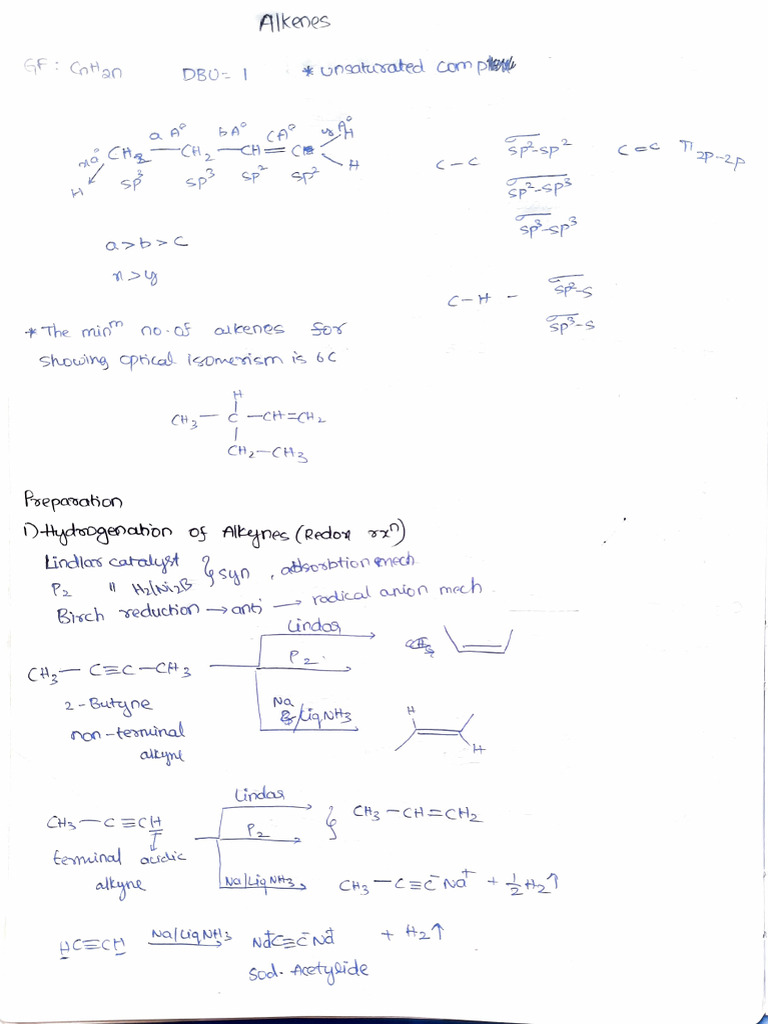 Alkenes
GF: CnH2n DBU= 1 * unsaturated comp
a A° b A° CA° y A°
x A° CH2 — CH2 — CH = C H
H sp³ sp³ sp² sp² H
C — C sp²-sp² C=C π2p-2p
sp²-sp³
sp³-sp³
a > b > c
x > y
C — H - sp²-s
sp³-s
* The minᵐ no. of alkenes for
showing optical isomerism is 6C
H
CH3 — C — CH=CH2
CH2 — CH3
Preparation
1) Hydrogenation of Alkynes (Redox rxⁿ)
Lindlar catalyst } syn , adsorbtion mech
P2 " H2/Ni2B
Birch reduction → anti → radical anion mech.
Lindar
CH3 — C≡C — CH3 P2.
2-Butyne Na
/Liq NH3 H
non-terminal H
alkyne
Lindar
CH3 — C ≡ CH P2 } CH3 — CH = CH2
terminal acidic
alkyne Na/Liq NH3 CH3 — C≡C⁻Na⁺ + 1/2 H2↑
HC≡CH Na/Liq NH3 Na⁺C≡C⁻Na⁺ + H2↑
Sod. Acetylide